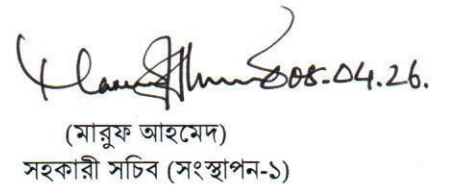 08-04.26.
(মারুফ আহমেদ)
সহকারী সচিব (সংস্থাপন-১)